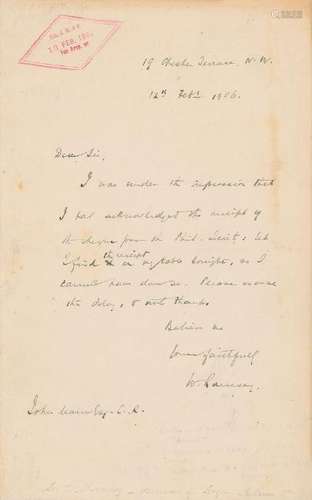 10 FEB. 190
19 Chester Terrace, N.W.
12th Feby 1906.
Dear Sir,
I was under the impression that
I had acknowledged the receipt of
the cheque from the Phil. Socity; but
I find the receipt on my table tonight, so I
cannot have done so. Please excuse
the delay, & with thanks
Believe me
Yours faithfully
W. Ramsay.
John Esq.